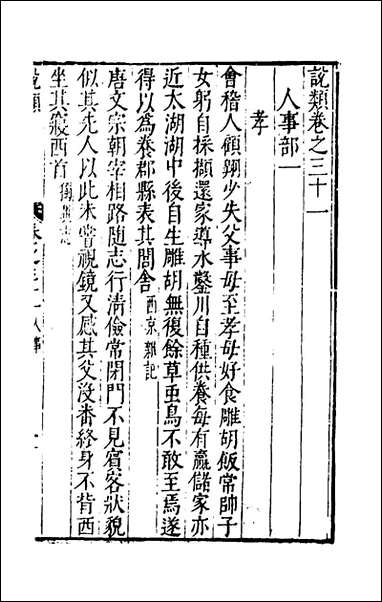 說類卷之三十一
人事部一
孝
會稽人顧翱少失父事母至孝母好食雕胡飯常帥子
女躬自採擷還家導水鑿川自種供養每有贏儲家亦
近太湖湖中後自生雕胡無復餘草虫鳥不敢至焉遂
得以爲養郡縣表其閭舍西京雜記
唐文宗朝宰相路隨志行清儉常閉門不見賓客狀貌
似其先人以此未嘗視鏡又感其父沒蕃終身不背西
坐其寢西首
說類
卷之三十一人事
一